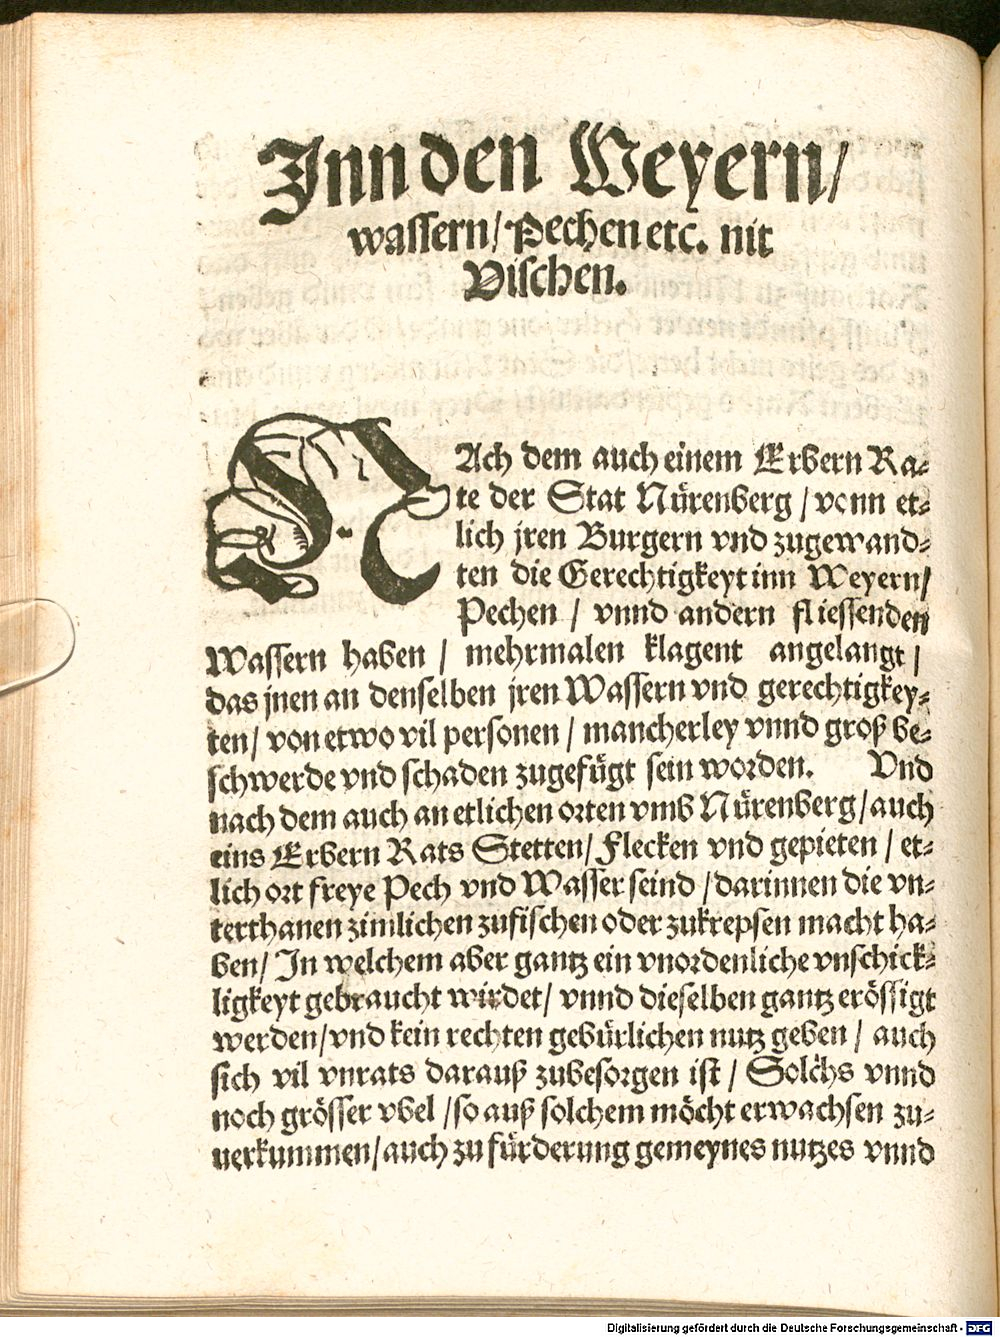 Jnn den Weyern/
wassern/ Pechen etc. nit
Vischen.
NAch dem auch einem Erbern Ra⸗
te der Stat Nürenberg / vonn et⸗
lich jren Burgern vnd zugewand⸗
ten die Gerechtigkeyt inn Weyern/
Pechen / vnnd andern fliessenden
Wassern haben / mehrmalen klagent angelangt /
das jnen an denselben jren Wassern vnd gerechtigkey⸗
ten/ von etwo vil personen / mancherley vnnd groß be⸗
schwerde vnd schaden zugefügt sein worden. Vnd
nach dem auch an etlichen orten vmb Nürenberg/ auch
eins Erbern Rats Stetten/ Flecken vnd gepieten / et⸗
lich ort freye Pech vnd Wasser seind / darinnen die vn⸗
terthanen zimlichen zufischen oder zukrepsen macht ha⸗
ben/ Jn welchem aber gantz ein vnordenliche vnschick⸗
ligkeyt gebraucht wirdet/ vnnd dieselben gantz erössigt
werden/ vnd kein rechten gebürlichen nutz geben / auch
sich vil vnrats darauß zubesorgen ist / Solchs vnnd
noch grösser vbel / so auß solchem möcht erwachsen zu⸗
uerkummen/ auch zu fürderung gemeynes nutzes vnnd
Digitalisierung gefördert durch die Deutsche Forschungsgemeinschaft - DFG